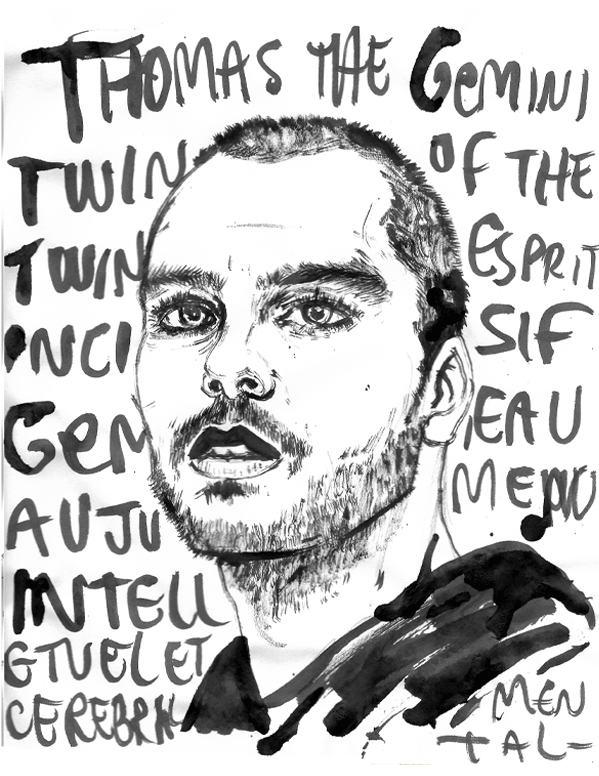 THOMAS THE GEMINI
TWIN OF THE
TWIN ESPRIT
INCI SIF
GEM EAU
AUJU MERO
INTELL
GTUEL ET
CEREBRAL MEN
TAL-